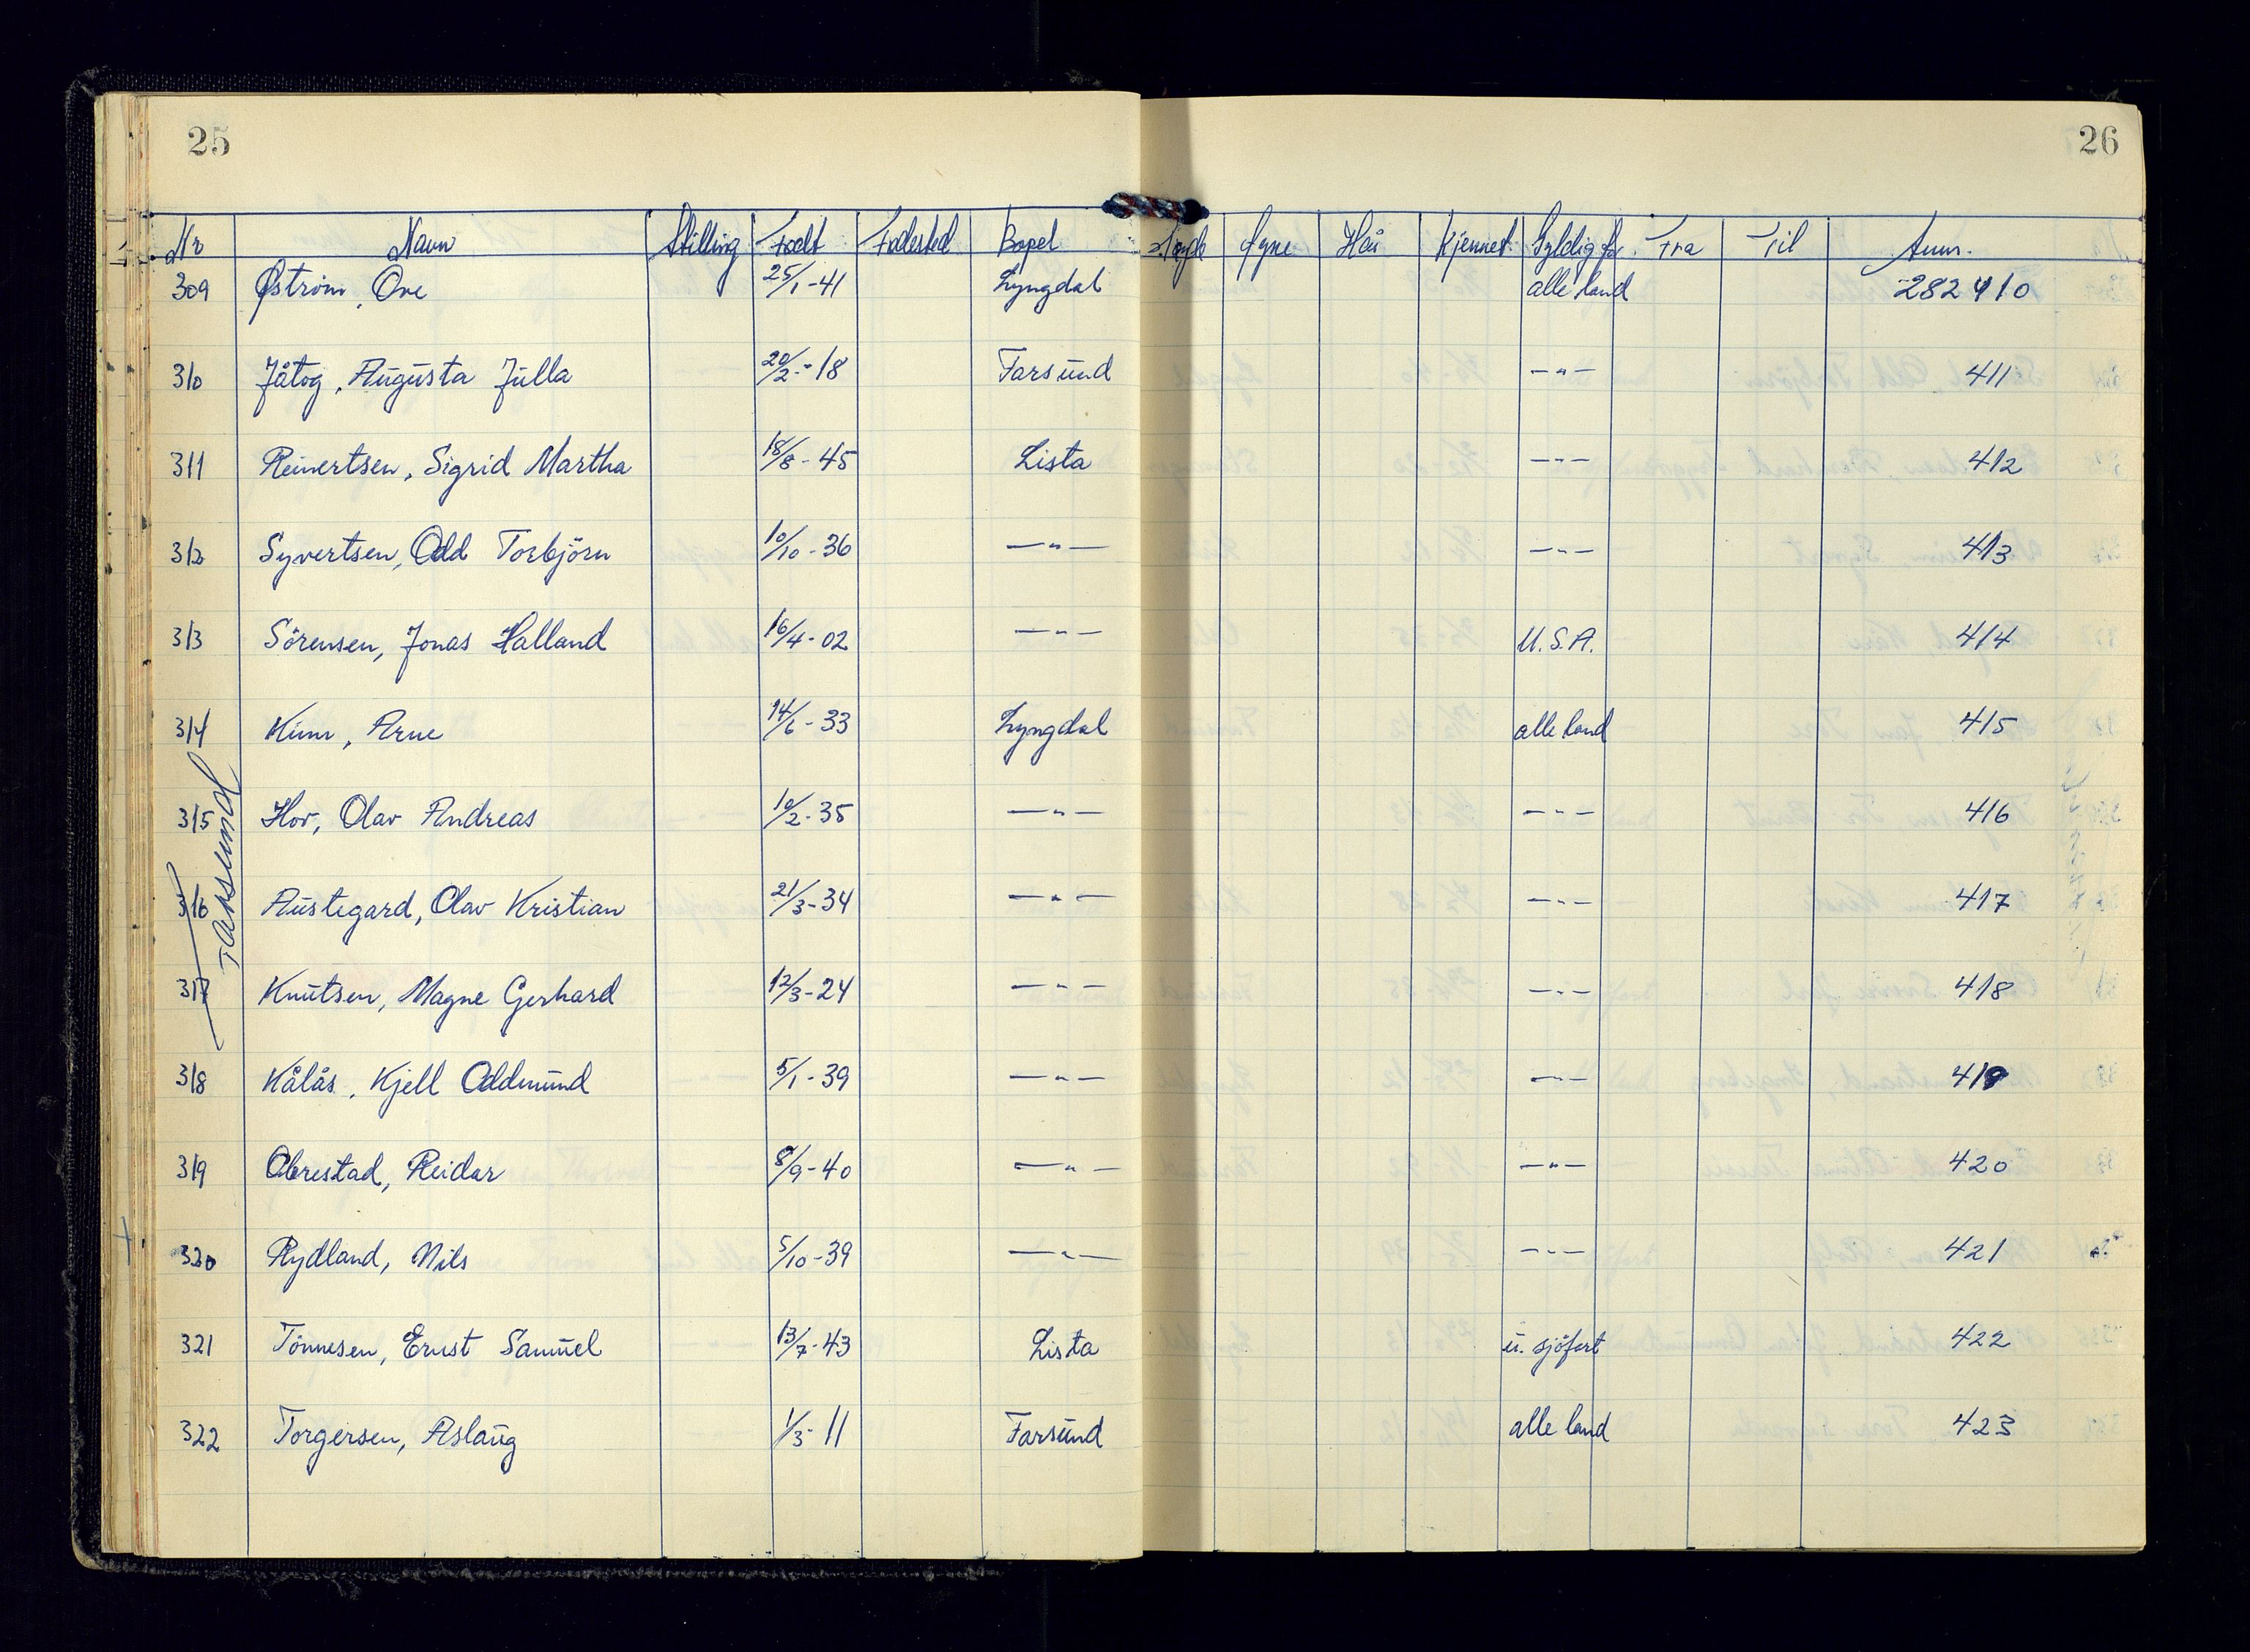 25
26
Nr Navn Stilling Född Födested Bopel Høyde Øyne Hår Kjennet. Gyldig for Fra Til Anm.
309 Øström, Ove 25/1-41 Lyngdal alle land 282410
310 Jåtog, Augusta Julla 20/2-18 Farsund -"- 411
311 Reinertsen, Sigrid Martha 18/8-45 Lista -"- 412
312 Syvertsen, Odd Torbjörn 10/10-36 -"- -"- 413
313 Sörensen, Jonas Halland 16/4-02 -"- U.S.A. 414
314 Kim, Arne 14/6-33 Lyngdal alle land 415
315 Hov, Olav Andreas 10/2-35 -"- -"- 416
316 Austegard, Olav Kristian 21/3-34 -"- -"- 417
317 Knutsen, Magne Gerhard 12/3-24 -"- -"- 418
318 Kålås, Kjell Oddmund 5/1-39 -"- -"- 419
319 Obrestad, Reidar 8/9-40 -"- -"- 420
320 Rydland, Nils 5/10-39 -"- -"- 421
321 Tönnesen, Ernst Samuel 13/7-43 Lista u. sjöfart 422
322 Torgersen, Aslaug 1/3-11 Farsund alle land 423
Farsund